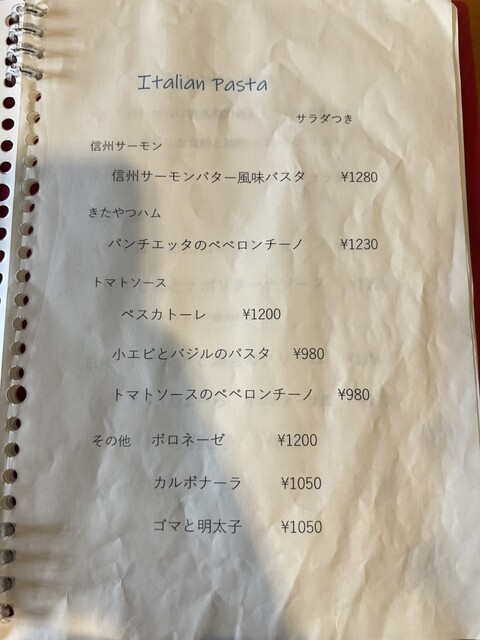 Italian Pasta
サラダつき
信州サーモン
信州サーモンバター風味パスタ ¥1280
きたやつハム
パンチエッタのペペロンチーノ ¥1230
トマトソース
ペスカトーレ ¥1200
小エビとバジルのパスタ ¥980
トマトソースのペペロンチーノ ¥980
その他 ボロネーゼ ¥1200
カルボナーラ ¥1050
ゴマと明太子 ¥1050